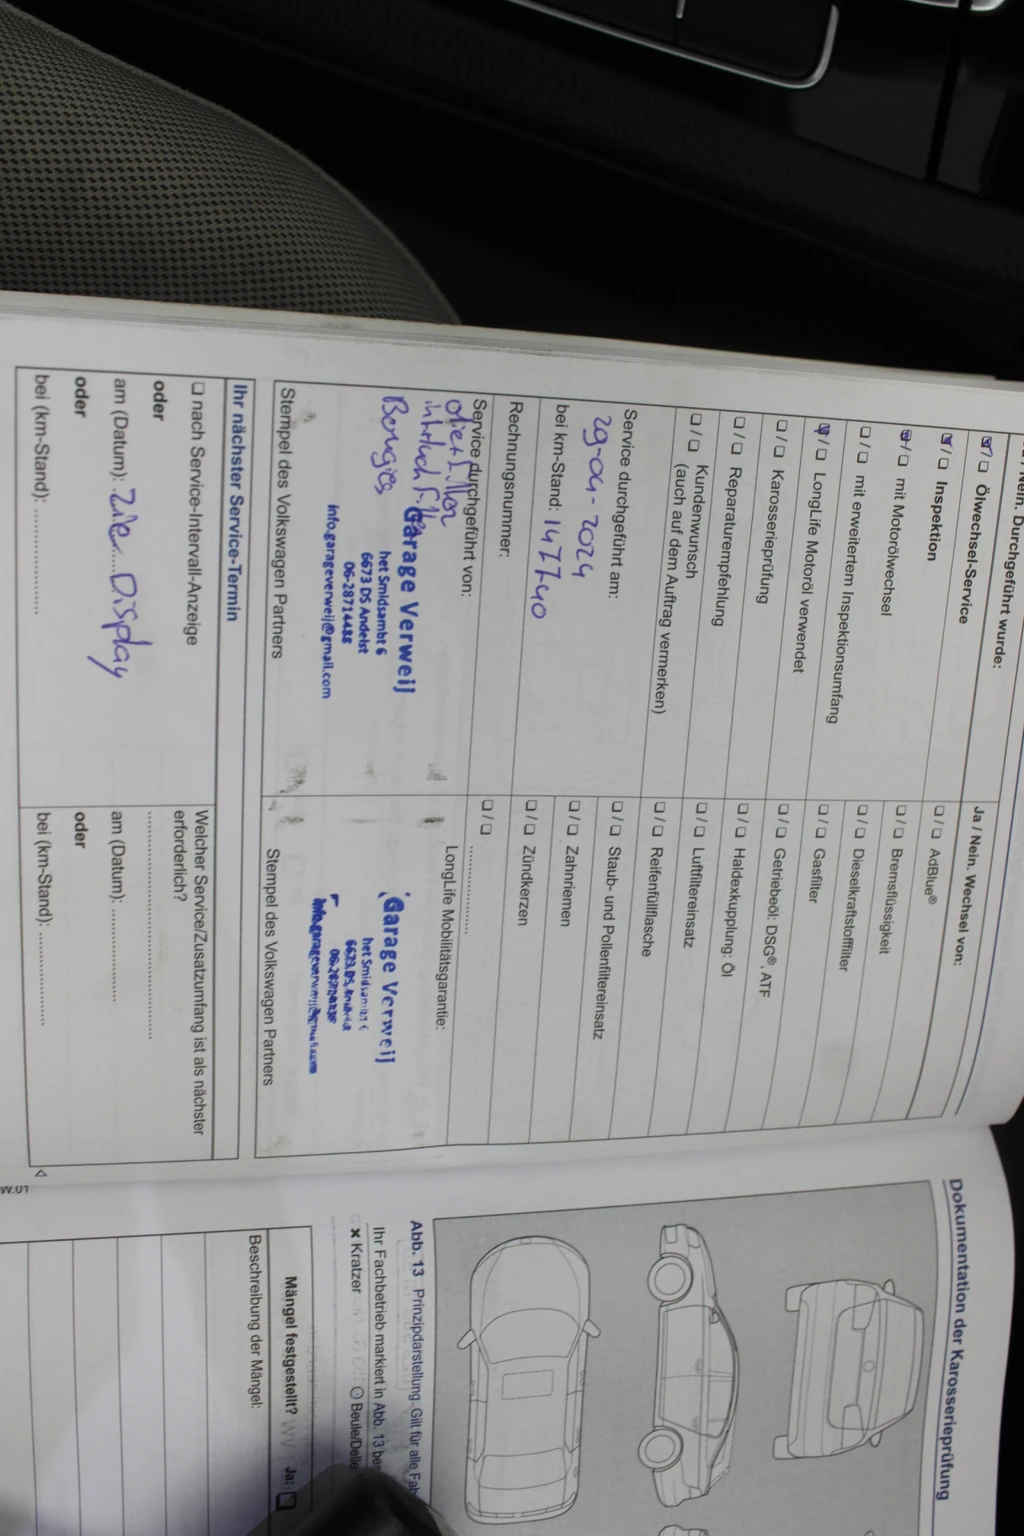 Nein. Durchgeführt wurde:
☑ / ❑ Ölwechsel-Service
☑ / ❑ Inspektion
☑ / ❑ mit Motorölwechsel
❑ / ❑ mit erweitertem Inspektionsumfang
☑ / ❑ LongLife Motoröl verwendet
❑ / ❑ Karosserieprüfung
❑ / ❑ Reparaturempfehlung
❑ / ❑ Kundenwunsch
(auch auf dem Auftrag vermerken)
Service durchgeführt am:
29-04-2024
bei km-Stand: 147740
Rechnungsnummer:
Service durchgeführt von:
Bougies
Garage Verweij
het Smidsambt 6
6673 DS Andelst
06-28714488
info.garageverweij@gmail.com
Stempel des Volkswagen Partners
Ja / Nein. Wechsel von:
❑ / ❑ AdBlue®
❑ / ❑ Bremsflüssigkeit
❑ / ❑ Dieselkraftstofffilter
❑ / ❑ Gasfilter
❑ / ❑ Getriebeöl: DSG®, ATF
❑ / ❑ Haldexkupplung: Öl
❑ / ❑ Luftfiltereinsatz
❑ / ❑ Reifenfüllflasche
❑ / ❑ Staub- und Pollenfiltereinsatz
❑ / ❑ Zahnriemen
❑ / ❑ Zündkerzen
❑ / ❑ ....................
LongLife Mobilitätsgarantie:
Garage Verweij
het Smidsambt 6
Stempel des Volkswagen Partners
Ihr nächster Service-Termin
❑ nach Service-Intervall-Anzeige
oder
am (Datum): Zie Display
oder
bei (km-Stand): ....................
Welcher Service/Zusatzumfang ist als nächster
erforderlich?
........................................
am (Datum): ....................
oder
bei (km-Stand): ....................
Dokumentation der Karosserieprüfung
Abb. 13 Prinzipdarstellung. Gilt für alle
Ihr Fachbetrieb markiert in Abb. 13
✖ Kratzer
Beule/Delle
Mängel festgestellt? Ja: ❑
Beschreibung der Mängel: